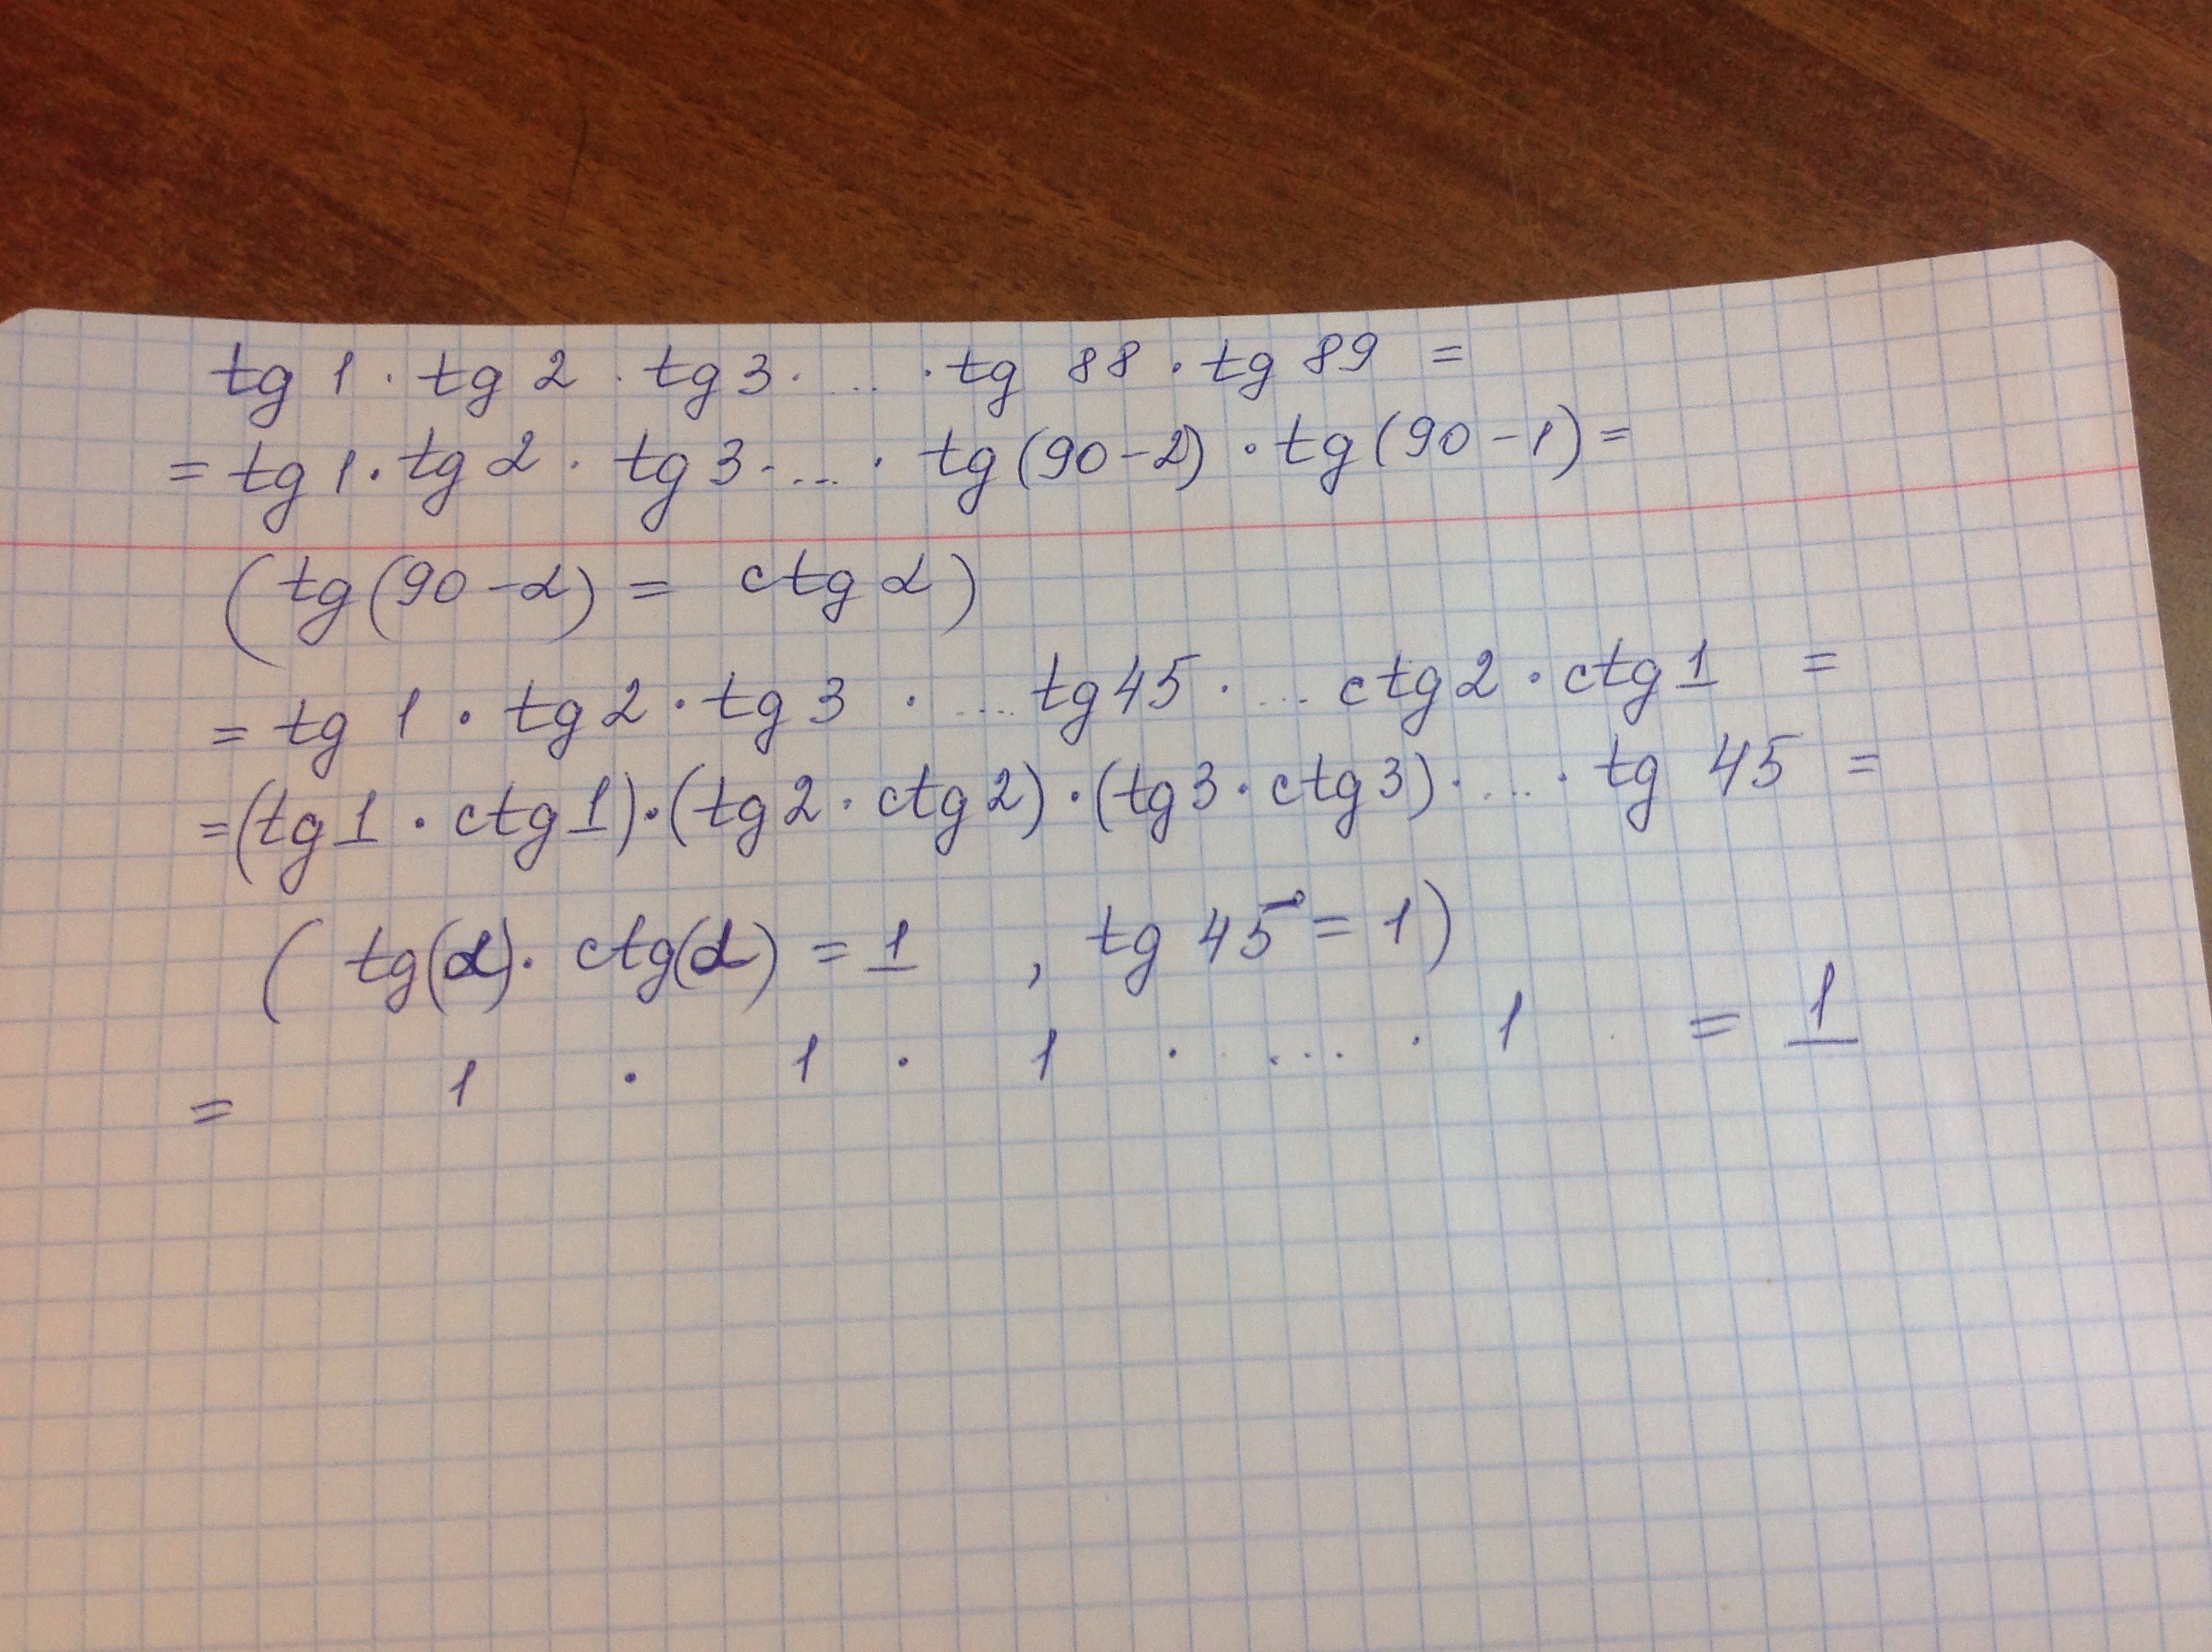 tg 1 · tg 2 · tg 3 · ... · tg 88 · tg 89 =
= tg 1 · tg 2 · tg 3 · ... · tg (90 - 2) · tg (90 - 1) =
(tg (90 - α) = ctg α)
= tg 1 · tg 2 · tg 3 · .... tg 45 · ... ctg 2 · ctg 1 =
= (tg 1 · ctg 1) · (tg 2 · ctg 2) · (tg 3 · ctg 3) · .... · tg 45 =
( tg(α) · ctg(α) = 1 , tg 45 = 1)
= 1 · 1 · 1 · .... · 1 = 1